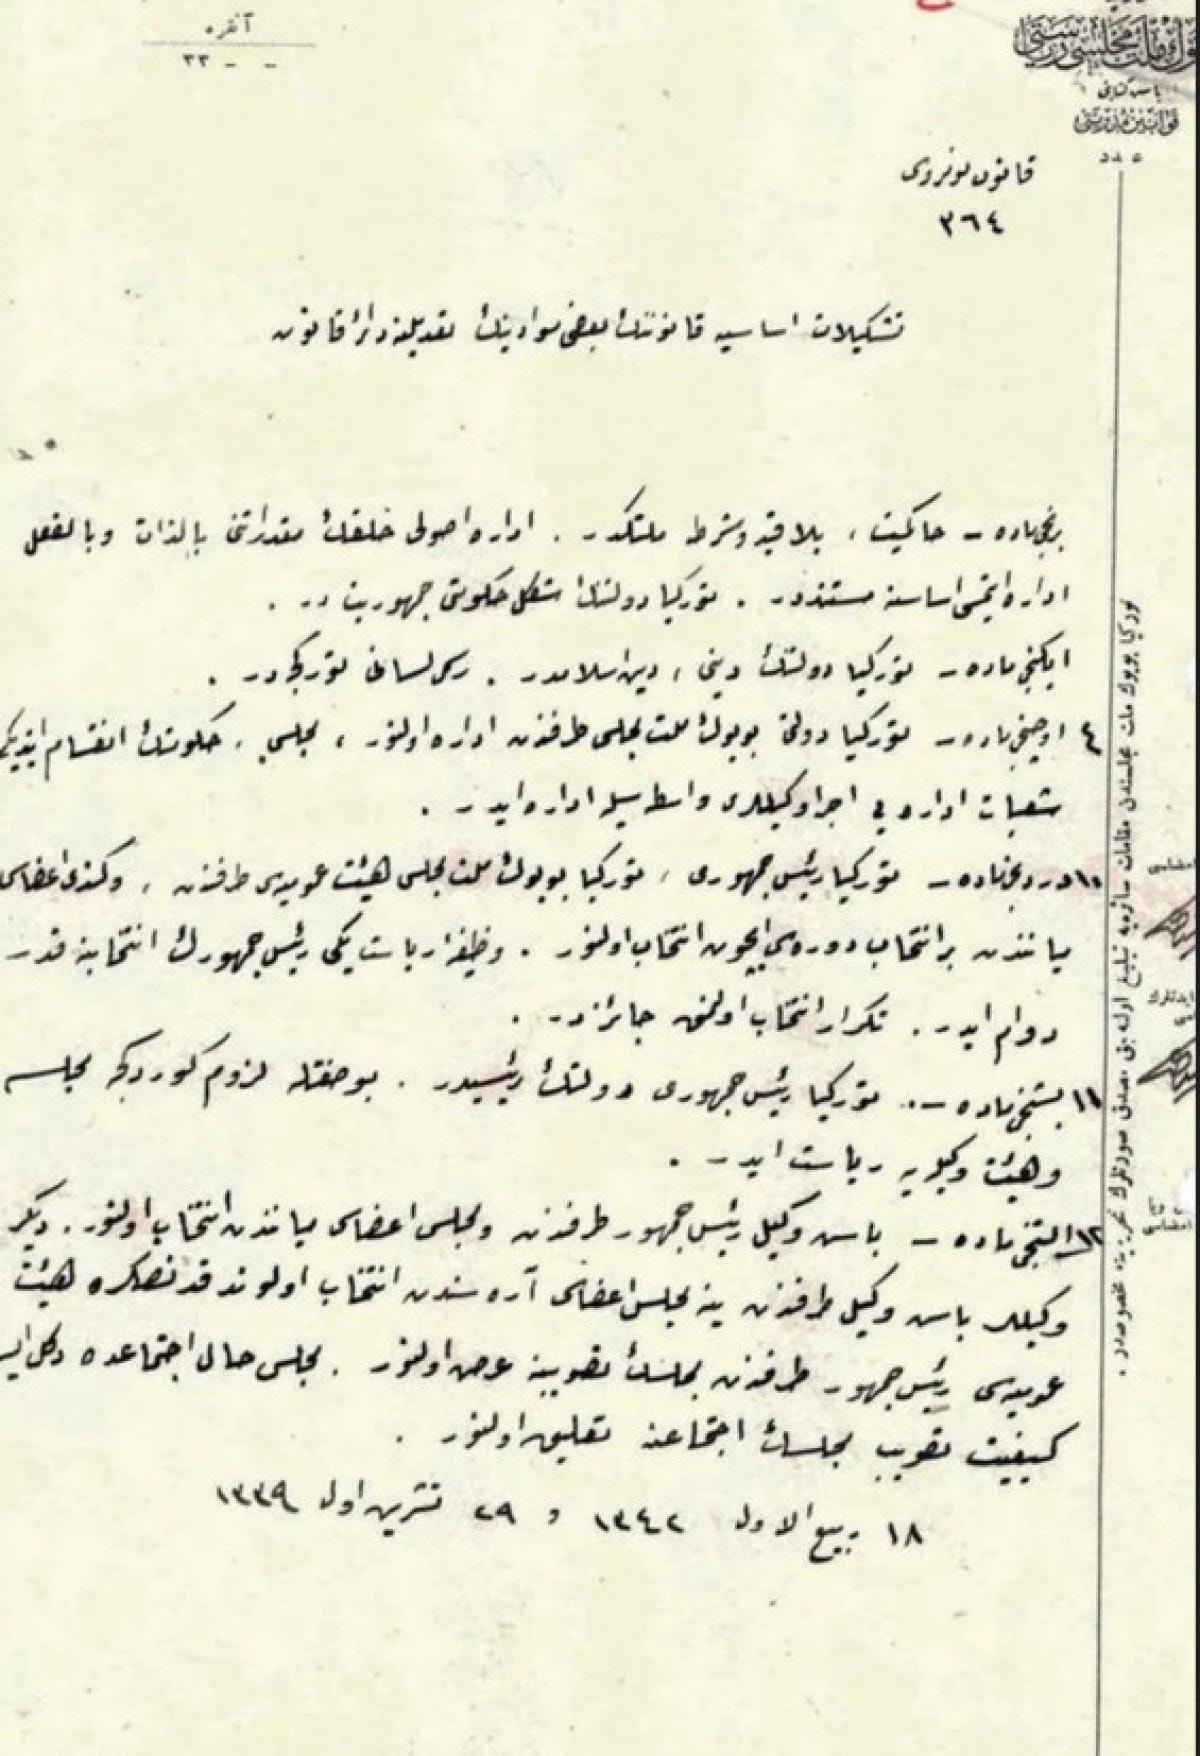 آنقره
- - ٣٣
بیوك ملت مجلسی ریاستی
باش كتابتی
قوانین مدیریتی
عدد
قانون نومروسی
٣٦٤
تشكیلات اساسیه قانوننك بعضی موادینك تعدیلنه دائر قانون
برنجی ماده – حاكمیت ، بلا قید و شرط ملتكدر . اداره اصولی خلقك مقدراتنی بالذات و بالفعل
اداره ایتمسی اساسنه مستنددر . توركیا دولتنك شكل حكومتی جمهوریت در .
ایكنجی ماده – توركیا دولتنك دینی ، دین اسلامدر . رسمی لسانی توركجه در .
٤ اوچنجی ماده – توركیا دولتی بویوك ملت مجلسی طرفندن اداره اولنور ، مجلس ، حكومتك انقسام ایتدیكی
شعبات اداره یی اجرا وكیللری واسطه سیله اداره ایدر .
١٠ دردنجی ماده – توركیا رئیس جمهوری ، توركیا بویوك ملت مجلسی هیئت عمومیه سی طرفندن ، و كندی اعضاسی
میانندن بر انتخاب دوره سی ایچون انتخاب اولنور . وظیفه ریاست یكی رئیس جمهورك انتخابنه قدر
دوام ایدر . تكرار انتخاب اولنمق جائزدر .
١١ بشنجی ماده – توركیا رئیس جمهوری دولتك رئیسیدر . بو صفتله لزوم كوردكجه مجلسه
و هیئت وكیلیه ریاست ایدر .
١٢ التنجی ماده – باش وكیل رئیس جمهور طرفندن و مجلس اعضاسی میانندن انتخاب اولنور . دیكر
وكیللر باش وكیل طرفندن ینه مجلس اعضاسی آره سندن انتخاب اولوندقدنصكره هیئت
عمومیه سی رئیس جمهور طرفندن مجلسك تصویبنه عرض اولنور . مجلس حال اجتماعده دكل ایسه
كیفیت تصویب مجلسك اجتماعنه تعلیق اولنور .
١٨ ربیع الاول ١٣٤٢ و ٢٩ تشرین اول ١٣٣٩
توركیا بویوك ملت مجلسندن مقامات سائره یه تبلیغ اولنه جق مصدق صورتلرك تحریرینه مخصوصدر .
امضاسی